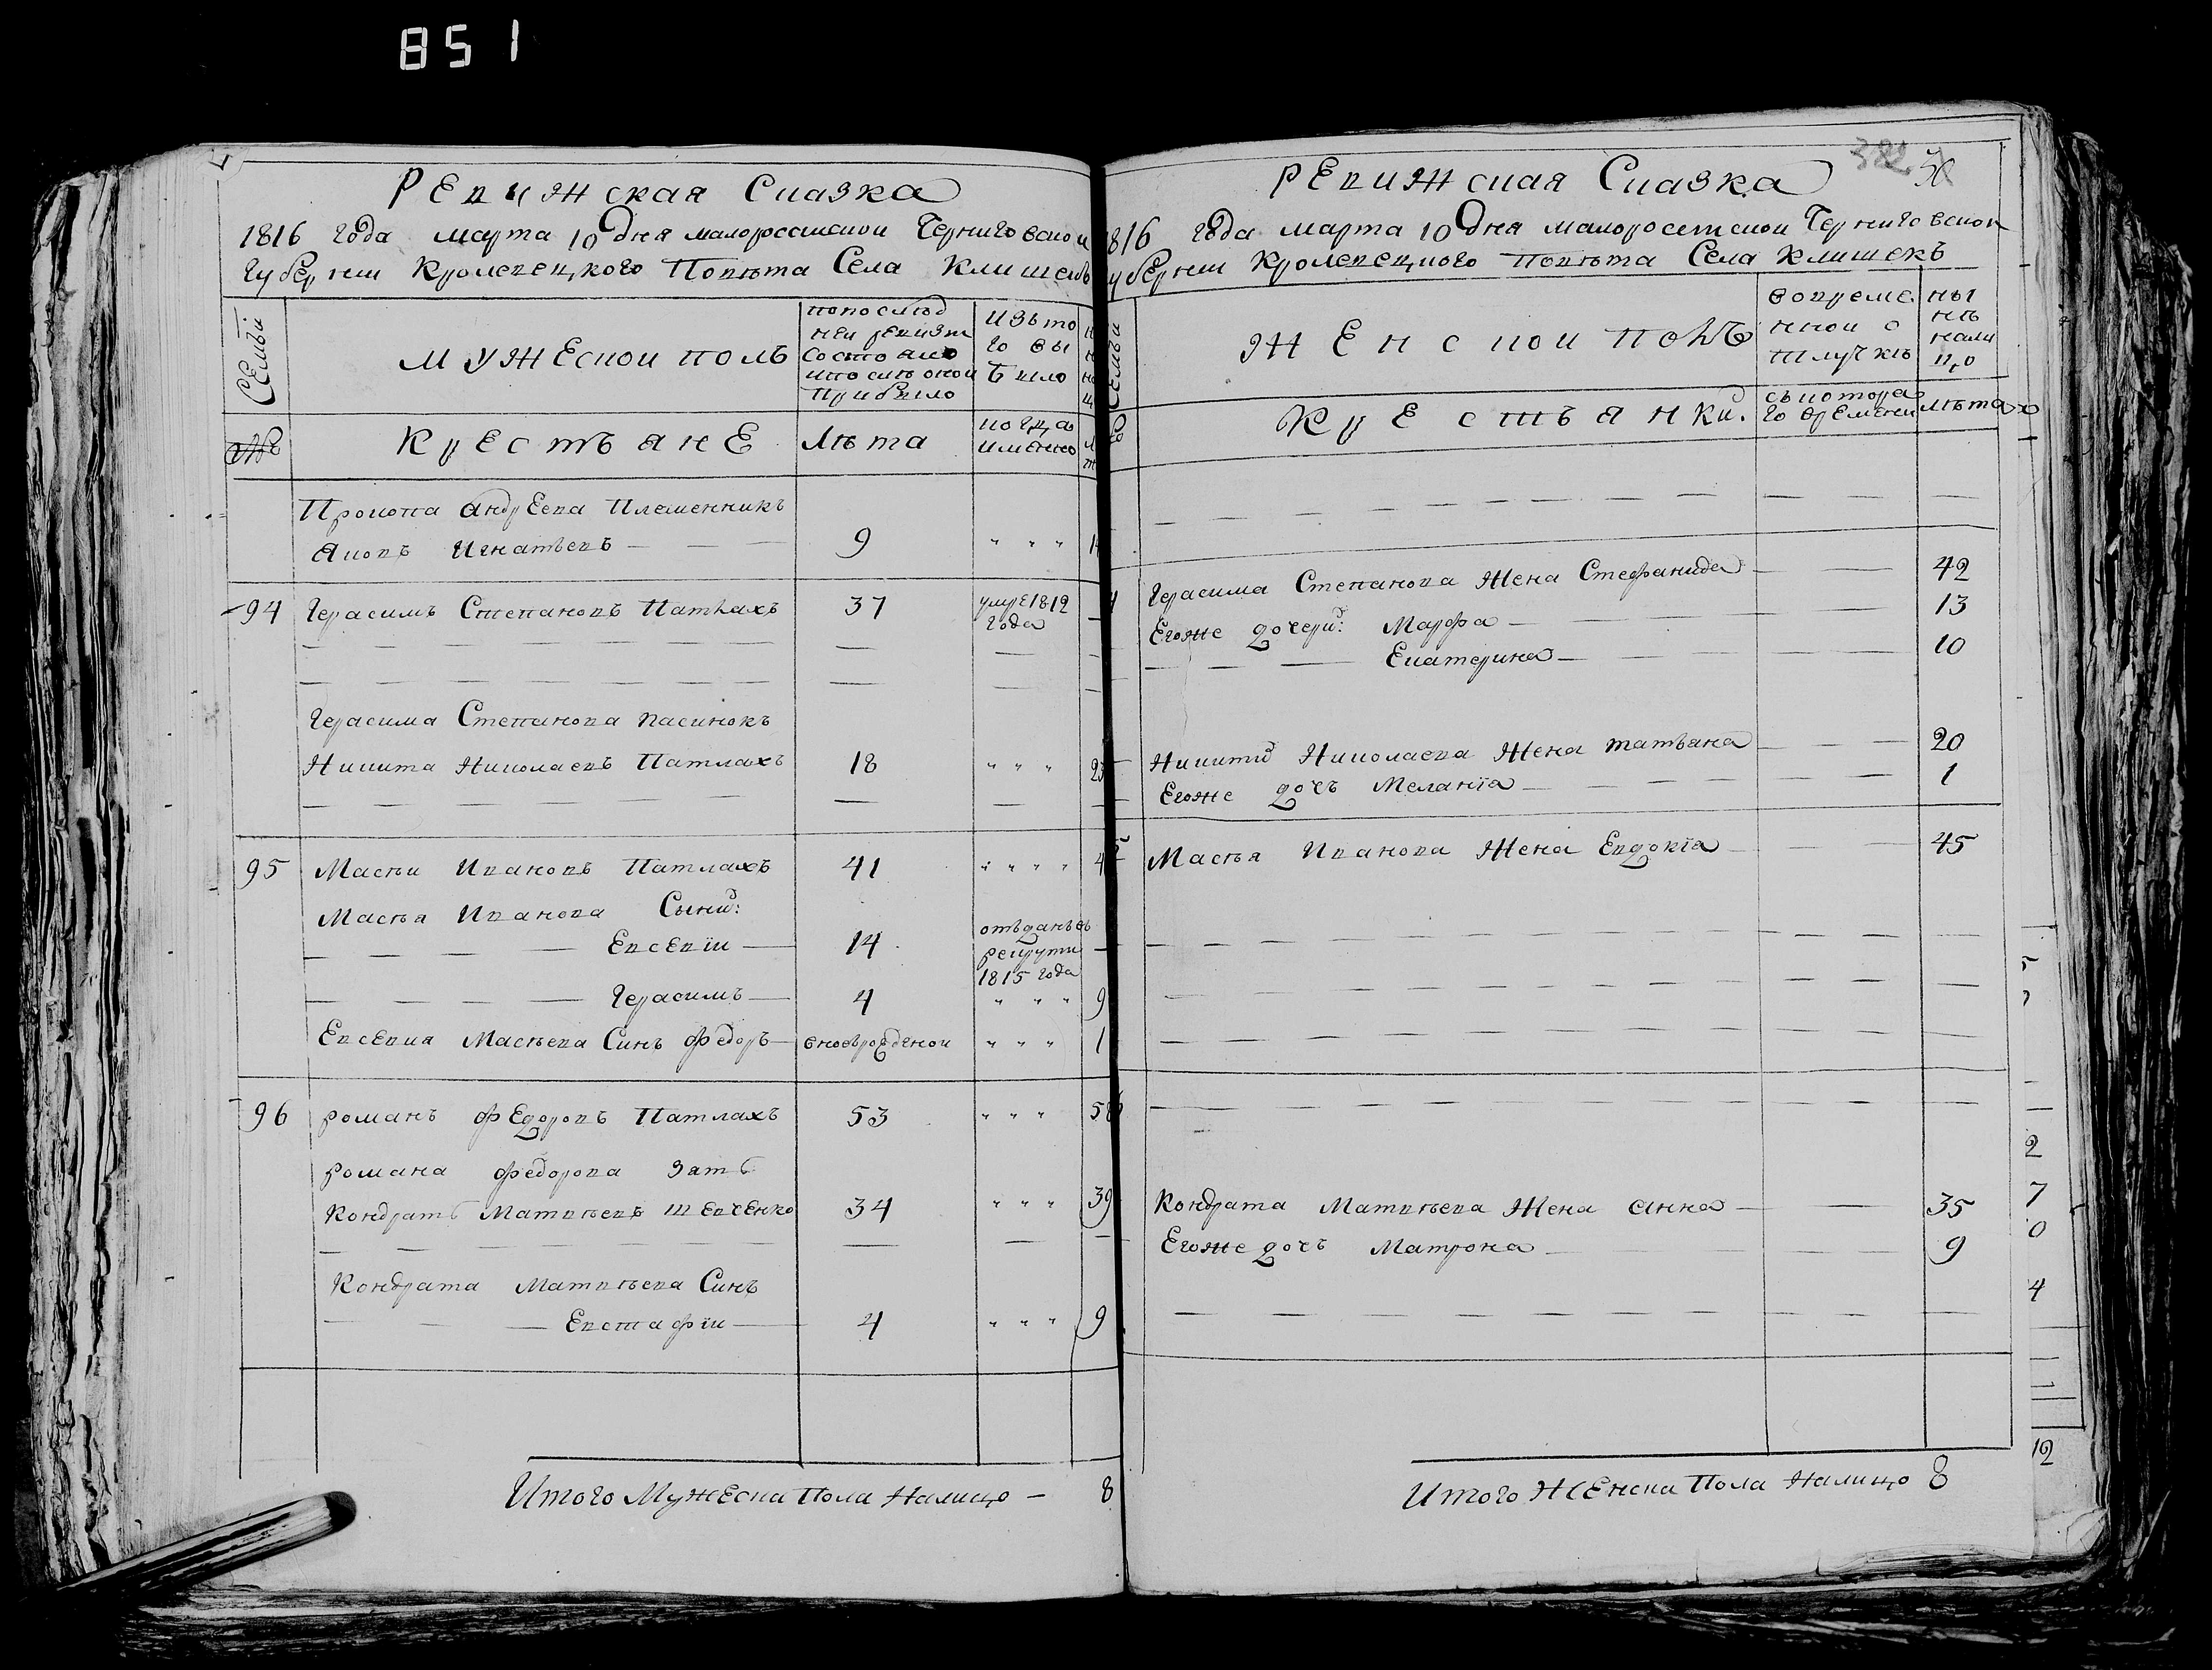 851
Ревижская Сказка
1816 года марта 10 дня малоросийской Черниговской
Губернии Кролевецкого Повѣта Села Клишекъ
Семьи
мужеской полъ
попослѣд
ней ревизи
состояло
ипослѣ оной
прибыло
Изъто
го вы
было
№
Крестьяне
Лѣта
когда
имянно
Прокопа Андреева Племенникъ
Яковъ Игнатьевъ — — —
9
" " "
94 Герасимъ Степановъ Патлахъ
37
умре 1812
года
Герасима Степанова пасинокъ
Никита Николаевъ Патлахъ
18
" " "
95 Масѣй Ивановъ Патлахъ
41
" " " "
Масѣя Иванова Сыны:
Евсевій
14
отъданъ въ
рекруты
1815 года
Герасимъ
4
" " "
9
Евсевия Масѣева Синъ Федоръ
вновьрожденой
" " "
1
96 Романъ Федоровъ Патлахъ
53
" " "
58
Романа Федорова Зать
Кондратъ Матвѣевъ Шевченко
34
" " "
39
Кондрата Матвѣева Синъ
Евстафій
4
" " "
9
Итого Мужеска Пола Налицо — 8
382
50
Ревижская Сказка
1816 года марта 10 дня малоросийской Черниговской
Губернии Кролевецкого Повѣта Села Клишекъ
Семьи
Женской полъ
вовреме
нной о
тлучкѣ
ны
нѣ
нали
цо
Крестьянки.
съкотора
го времени
лѣта
Герасима Степанова Жена Стефанида — — 42
Егоже дочери: Марфа — — — 13
Екатерина — — — 10
Никиты Николаева Жена Татьана — — — 20
Егоже дочь Меланїа — — — 1
Масѣя Иванова Жена Евдокїа — — — 45
Кондрата Матвѣева Жена Анна — — 35
Егоже дочь Матрона — — 9
Итого Женска Пола Налицо 8
2
7
0
4
12